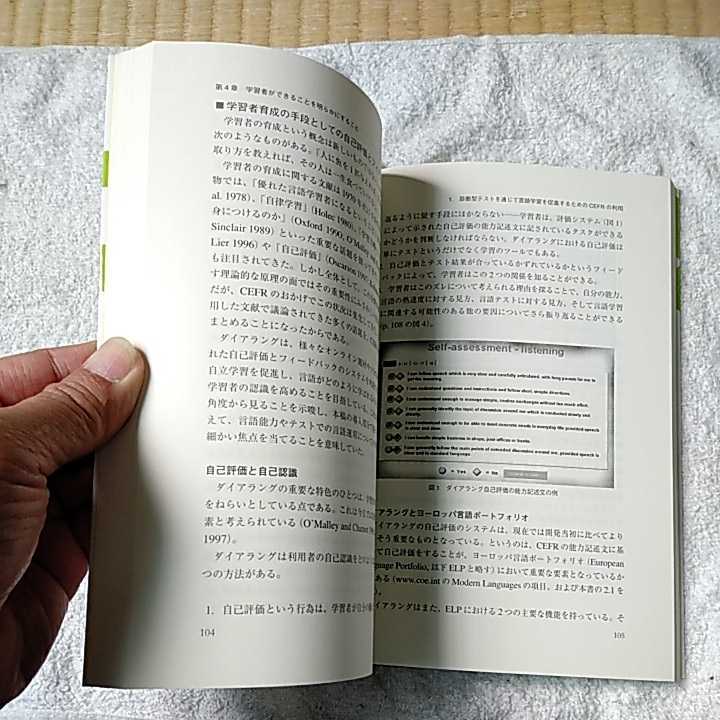 第4章 学習者ができることを明らかにすること
■学習者育成の手段としての自己評価と
学習者の育成という概念は新しいもの
次のようなものがある。「人に魚を1匹
取り方を教えれば、その人は一生食べて
学習者の育成に関する文献は1970年
物では、「優れた言語学習者になるという
al. 1978)、「自律学習」(Holec 1980)、「学
身につけるのか」(Oxford 1990; O'Ma
Sinclair 1989) といった重要な話題を扱って
Lier 1996) や「自己評価」(Oscarson 198
も注目されてきた。しかし全体として、この
す理論的な原理の面ではその重要性に
だが、CEFR のおかげでこの状況は変化して
用した文献で議論されてきた多くの話題
まとめることになったからである。
ダイアラングは、様々なオンライン
れた自己評価とフィードバックのシステム
自立学習を促進し、言語がどのように学ば
学習者の認識を高めることを目指している。
角度から見ることを示唆し、本稿の導入
えて、言語能力やテストでの言語運用について
細かい焦点を当てることを意味していた。
自己評価と自己認識
ダイアラングの重要な特色のひとつは、
をねらいとしている点である。これは今日
素と考えられている (O'Malley and Chamot 199
1997)。
ダイアラングは利用者の自己認識を
つの方法がある。
1. 自己評価という行為は、学習者が自分の
104
1. 診断型テストを通じて言語学習を促進するための CEFR の利用
返るように促す手段にほかならない――学習者は、評価システム (図1)
によって示された自己評価の能力記述文に記されているタスクができる
かどうかを判断しなければならない。ダイアラングにおける自己評価は
単にテストというだけでなく学習のツールでもある。
自己評価とテスト結果が合っているかずれているかというフィード
バックによって、学習者はこの2つの関係を知ることができる。
学習者はこのズレについて考えられる理由を探ることで、自分の能力、
言語の熟達度に対する見方、言語テストに対する見方、そして言語学習
に関連する可能性のある他の要因についてさら振り返ることができる
(p. 108 の図 4)。
Self-assessment - listening
I can follow speech which is very slow and carefully articulated, with long pauses for me to
get the meaning.
I can understand questions and instructions and follow short, simple directions.
I can understand enough to manage simple, routine exchanges without too much effort.
I can generally identify the topic of discussion around me which is conducted slowly and
clearly.
I can understand enough to be able to meet concrete needs in everyday life provided speech
is clear and slow.
I can handle simple business in shops, post offices or banks.
I can generally follow the main points of extended discussion around me, provided speech is
clear and in standard language.
= Yes = No
図1 ダイアラング自己評価の能力記述文の例
アラングとヨーロッパ言語ポートフォリオ
ダイアラングの自己評価のシステムは、現在では開発当初に比べてより
そう重要なものとなっている。というのは、CEFR の能力記述文に基
て自己評価をすることが、ヨーロッパ言語ポートフォリオ (European
uage Portfolio, 以下 ELP と略す) において重要な要素となっているか
ある (www.coe.int の Modern Languages の項目、および本書の 2.1 を
)。
イアラングはまた、ELP における2つの主要な機能を持っている。そ
105